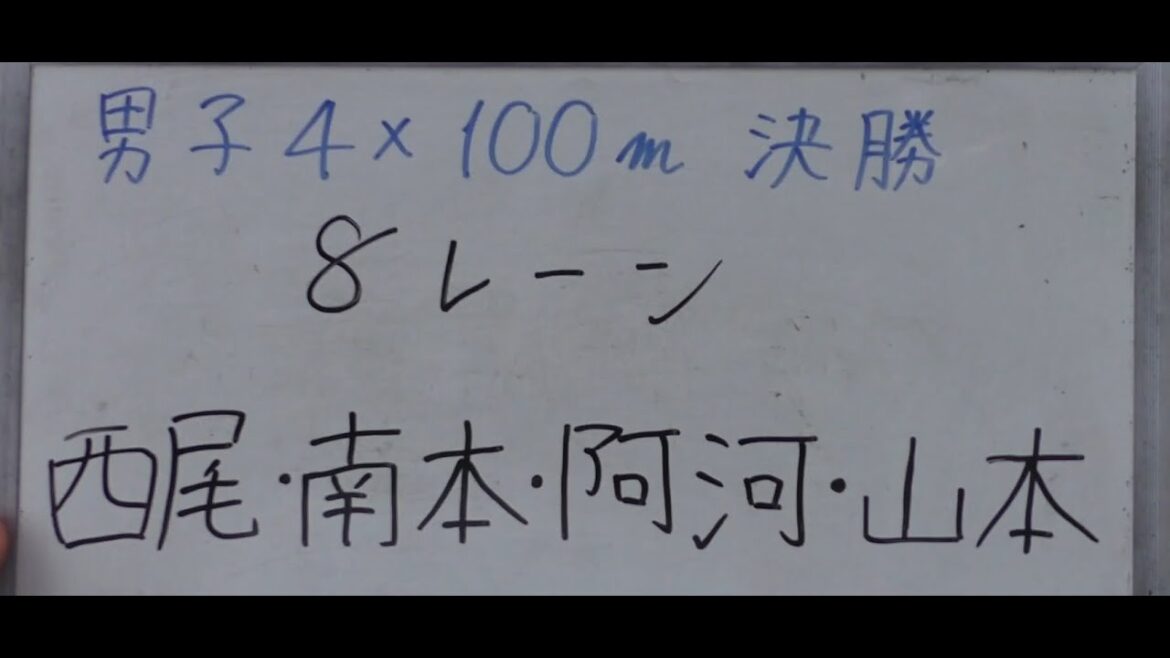 男子4×100m 決勝
8レーン
西尾・南本・阿河・山本